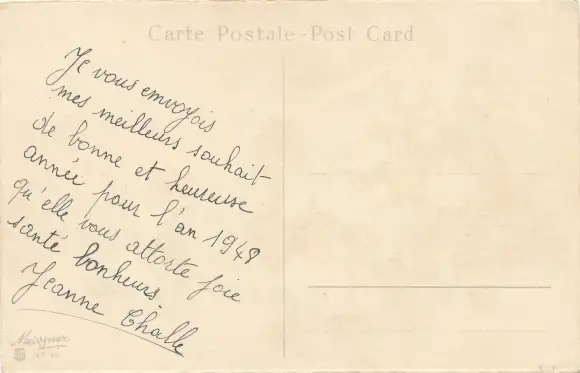 Carte Postale - Post Card
Je vous envoyois
mes meilleurs souhait
de bonne et heureuse
année pour l'an 1948
qu'elle vous attorte joie
santé bonheurs.
Jeanne Challe